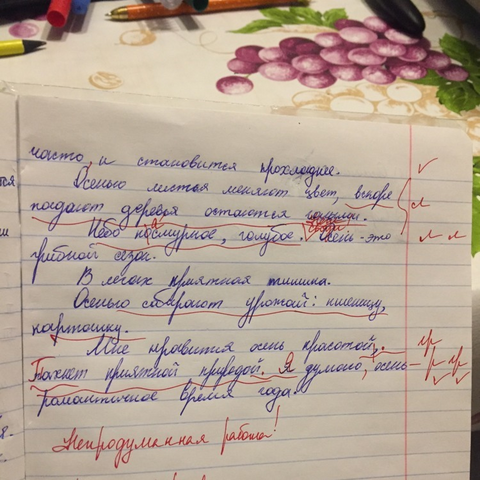 часто, и становится прохладнее.
Осенью листья меняют цвет, вскоре
падают деревья остаются голыми.
Небо пасмурное, голубое. Осень - это
грибной сезон.
В лесах приятная тишина.
Осенью собирают урожай: пшеницу,
картошку.
Мне нравится осень красотой,
Пахнет приятной природой. Я думаю, осень-
романтичное время года.
Непродуманная работа!